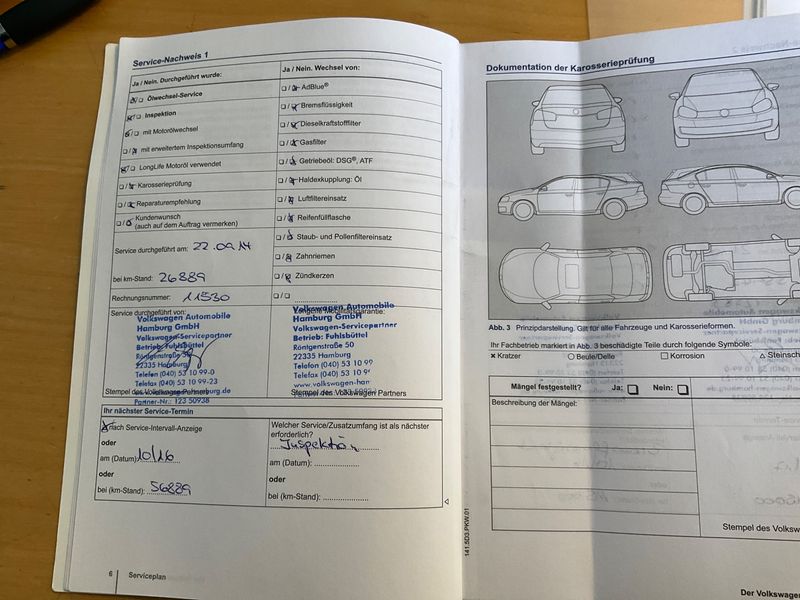 Service-Nachweis 1
Ja / Nein. Durchgeführt wurde:
Ölwechsel-Service
Inspektion
mit Motorölwechsel
mit erweitertem Inspektionsumfang
LongLife Motoröl verwendet
Karosserieprüfung
Reparaturempfehlung
Kundenwunsch
(auch auf dem Auftrag vermerken)
Service durchgeführt am: 22.09.14
bei km-Stand: 26889
Rechnungsnummer: 11530
Service durchgeführt von:
Volkswagen Automobile
Hamburg GmbH
Volkswagen-Servicepartner
Betrieb: Fuhlsbüttel
Röntgenstraße 50
22335 Hamburg
Telefon (040) 53 10 99-0
Telefax (040) 53 10 99-23
Stempel des Volkswagen Partners
Partner-Nr.: 123 50938
Ja / Nein. Wechsel von:
AdBlue®
Bremsflüssigkeit
Dieselkraftstofffilter
Gasfilter
Getriebeöl: DSG®, ATF
Haldexkupplung: Öl
Luftfiltereinsatz
Reifenfüllflasche
Staub- und Pollenfiltereinsatz
Zahnriemen
Zündkerzen
Volkswagen Automobile
Hamburg GmbH
Volkswagen-Servicepartner
Betrieb: Fuhlsbüttel
Röntgenstraße 50
22335 Hamburg
Telefon (040) 53 10 99
Telefax (040) 53 10
www.volkswagen-
Stempel des Volkswagen Partners
Ihr nächster Service-Termin
nach Service-Intervall-Anzeige
oder
am (Datum): 10/16
oder
bei (km-Stand): 56889
Welcher Service/Zusatzumfang ist als nächster
erforderlich?
Inspektion
am (Datum):
oder
bei (km-Stand):
6 Serviceplan
Dokumentation der Karosserieprüfung
Abb. 3 Prinzipdarstellung. Gilt für alle Fahrzeuge und Karosserieformen.
Ihr Fachbetrieb markiert in Abb. 3 beschädigte Teile durch folgende Symbole:
× Kratzer ○ Beule/Delle □ Korrosion △ Steinsch
Mängel festgestellt? Ja: Nein:
Beschreibung der Mängel:
Stempel des Volksw
141.5D3.PKW.01
Der Volkswagen